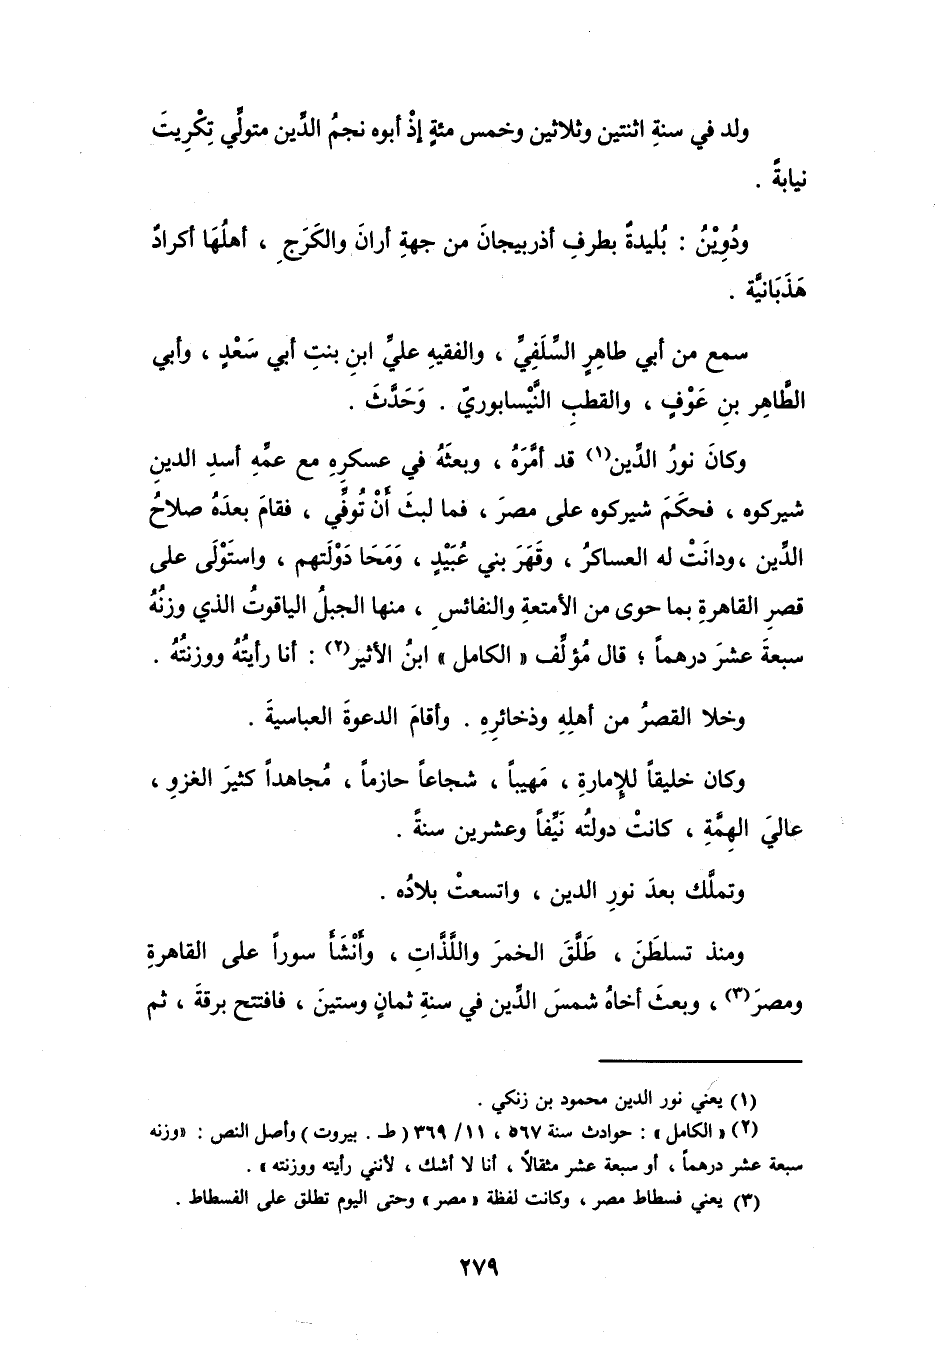 ولد في سنةِ اثنتين وثلاثين وخمس مئةٍ إذْ أبوه نجمُ الدِّين متولِّي تِكْرِيتَ
نيابةً .
ودُوِيْنُ : بُليدةٌ بطرفِ أذربيجانَ من جهةِ أرانَ والكَرَجِ ، أهلُهَا أكرادٌ
هَذَبَانيَّة .
سمع من أبي طاهِرٍ السِّلَفِيِّ ، والفقيهِ عليِّ ابنِ بنتِ أبي سَعْدٍ ، وأبي
الطَّاهِرِ بنِ عَوْفٍ ، والقطبِ النَّيْسابوريّ . وَحَدَّثَ .
وكانَ نورُ الدِّين(١) قد أمَّرَهُ ، وبعثَهُ في عسكرِهِ مع عمِّهِ أسدِ الدينِ
شيركوه ، فحكَمَ شيركوه على مصرَ ، فما لبثَ أَنْ تُوفِّي ، فقامَ بعدَهُ صلاحُ
الدِّين ،ودانَتْ له العساكرُ ، وقَهَرَ بني عُبَيْدٍ ، وَمَحَا دَوْلَتهم ، واستَوْلَى على
قصرِ القاهرةِ بما حوى من الأمتعةِ والنفائسِ ، منها الجبلُ الياقوتُ الذي وزنُهُ
سبعةَ عشرَ درهماً ؛ قال مُؤلِّف « الكامل » ابنُ الأثير(٢) : أنا رأيتُهُ ووزنتُهُ .
وخلا القصرُ من أهلِهِ وذخائرِهِ . وأقامَ الدعوةَ العباسيةَ .
وكان خليقاً للإِمارةِ ، مَهيباً ، شجاعاً حازماً ، مُجاهداً كثيرَ الغزوِ ،
عاليَ الهِمَّةِ ، كانتْ دولتُه نَيِّفاً وعشرين سنةً .
وتملَّك بعدَ نورِ الدين ، واتسعتْ بلادُه .
ومنذ تسلطَنَ ، طَلَّقَ الخمرَ واللَّذَّاتِ ، وأَنْشَأَ سوراً على القاهرةِ
ومصرَ(٣) ، وبعثَ أخاهُ شمسَ الدِّين في سنةِ ثمانٍ وستينَ ، فافتتح برقةَ ، ثم
(١) يعني نور الدين محمود بن زنكي .
(٢) « الكامل » : حوادث سنة ٥٦٧ ، ١١ / ٣٦٩ ( ط . بيروت ) وأصل النص : «وزنه
سبعة عشر درهماً ، أو سبعة عشر مثقالاً ، أنا لا أشك ، لأنني رأيته ووزنته » .
(٣) يعني فسطاط مصر ، وكانت لفظة « مصر » وحتى اليوم تطلق على الفسطاط .
٢٧٩